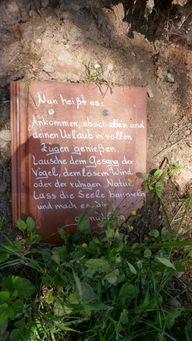 Nun heißt es:
Ankommen, abschalten und
deinen Urlaub in vollen
Zügen genießen.
Lausche dem Gesang der
Vögel, dem Wind
oder der ruhigen Natur.
Lass die Seele baumeln
und mach es dir